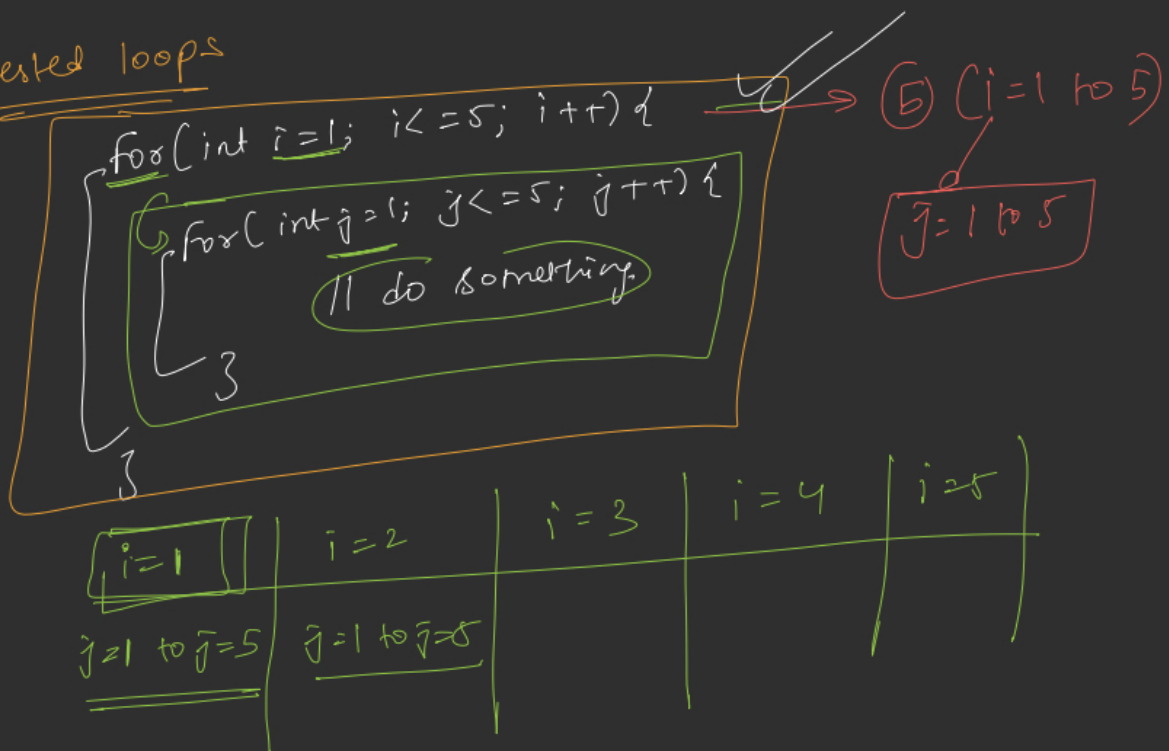 ested loops
for(int i=1; i<=5; i++){
for(int j=1; j<=5; j++){
// do something.
}
}
5 (i=1 to 5)
j=1 to 5
i=1 i=2 i=3 i=4 i=5
j=1 to j=5 j=1 to j=5